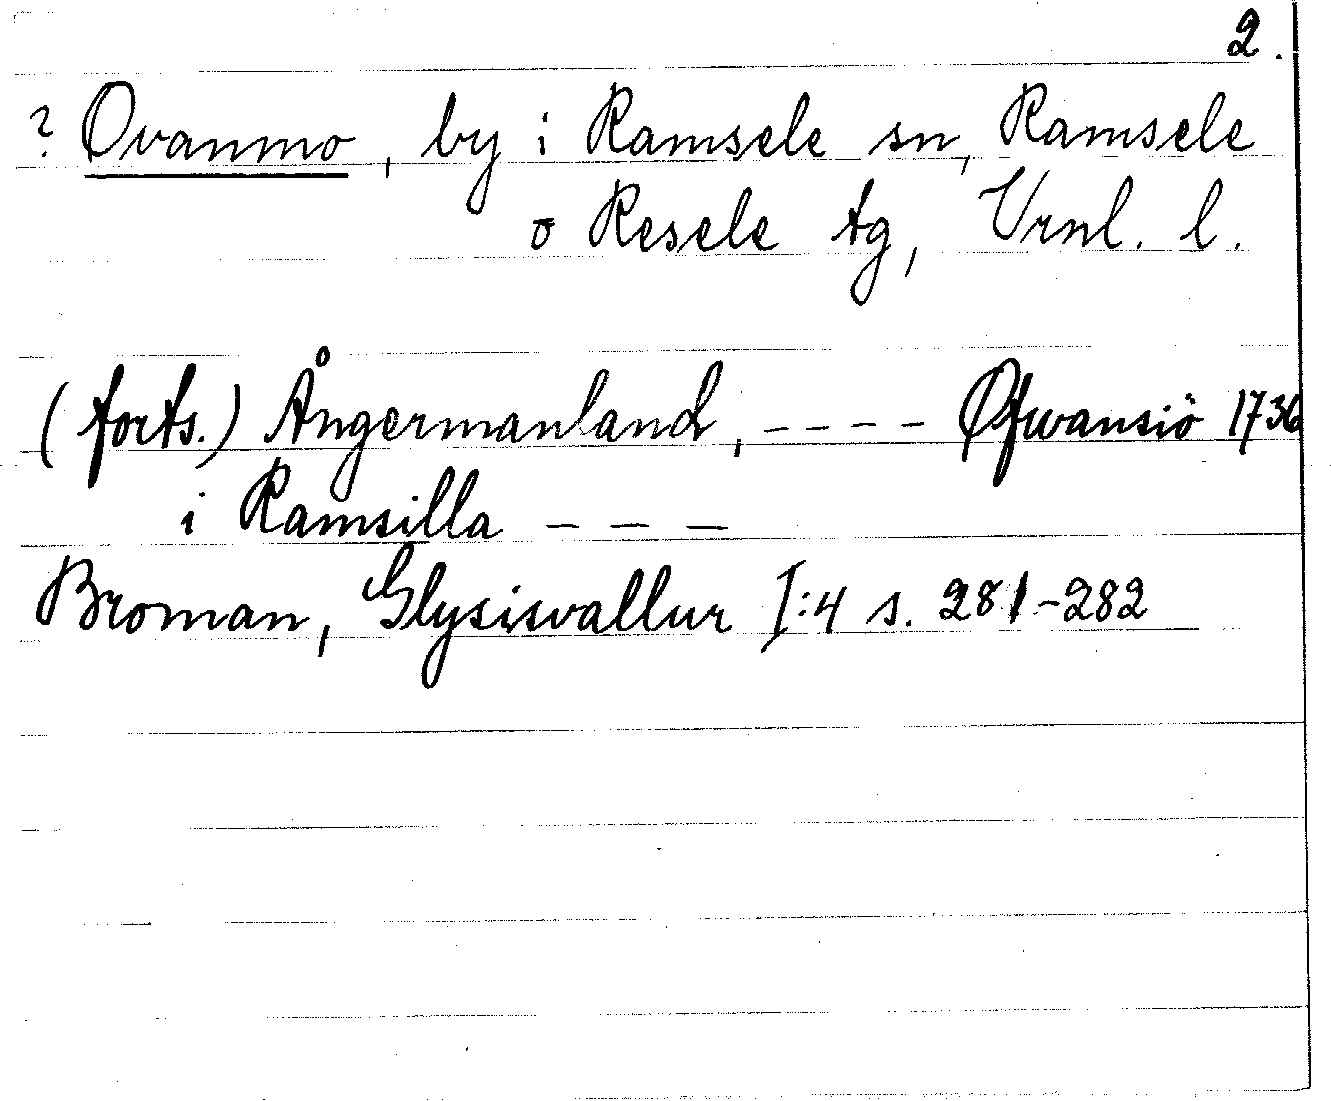 2.
? Ovanmo, by i Ramsele sn, Ramsele
o Resele tg, Vrnl. l.
(forts.) Ångermanland, ---- Øfwansiö 1736
i Ramsilla ---
Broman, Glysisvallur I:4 s. 281-282